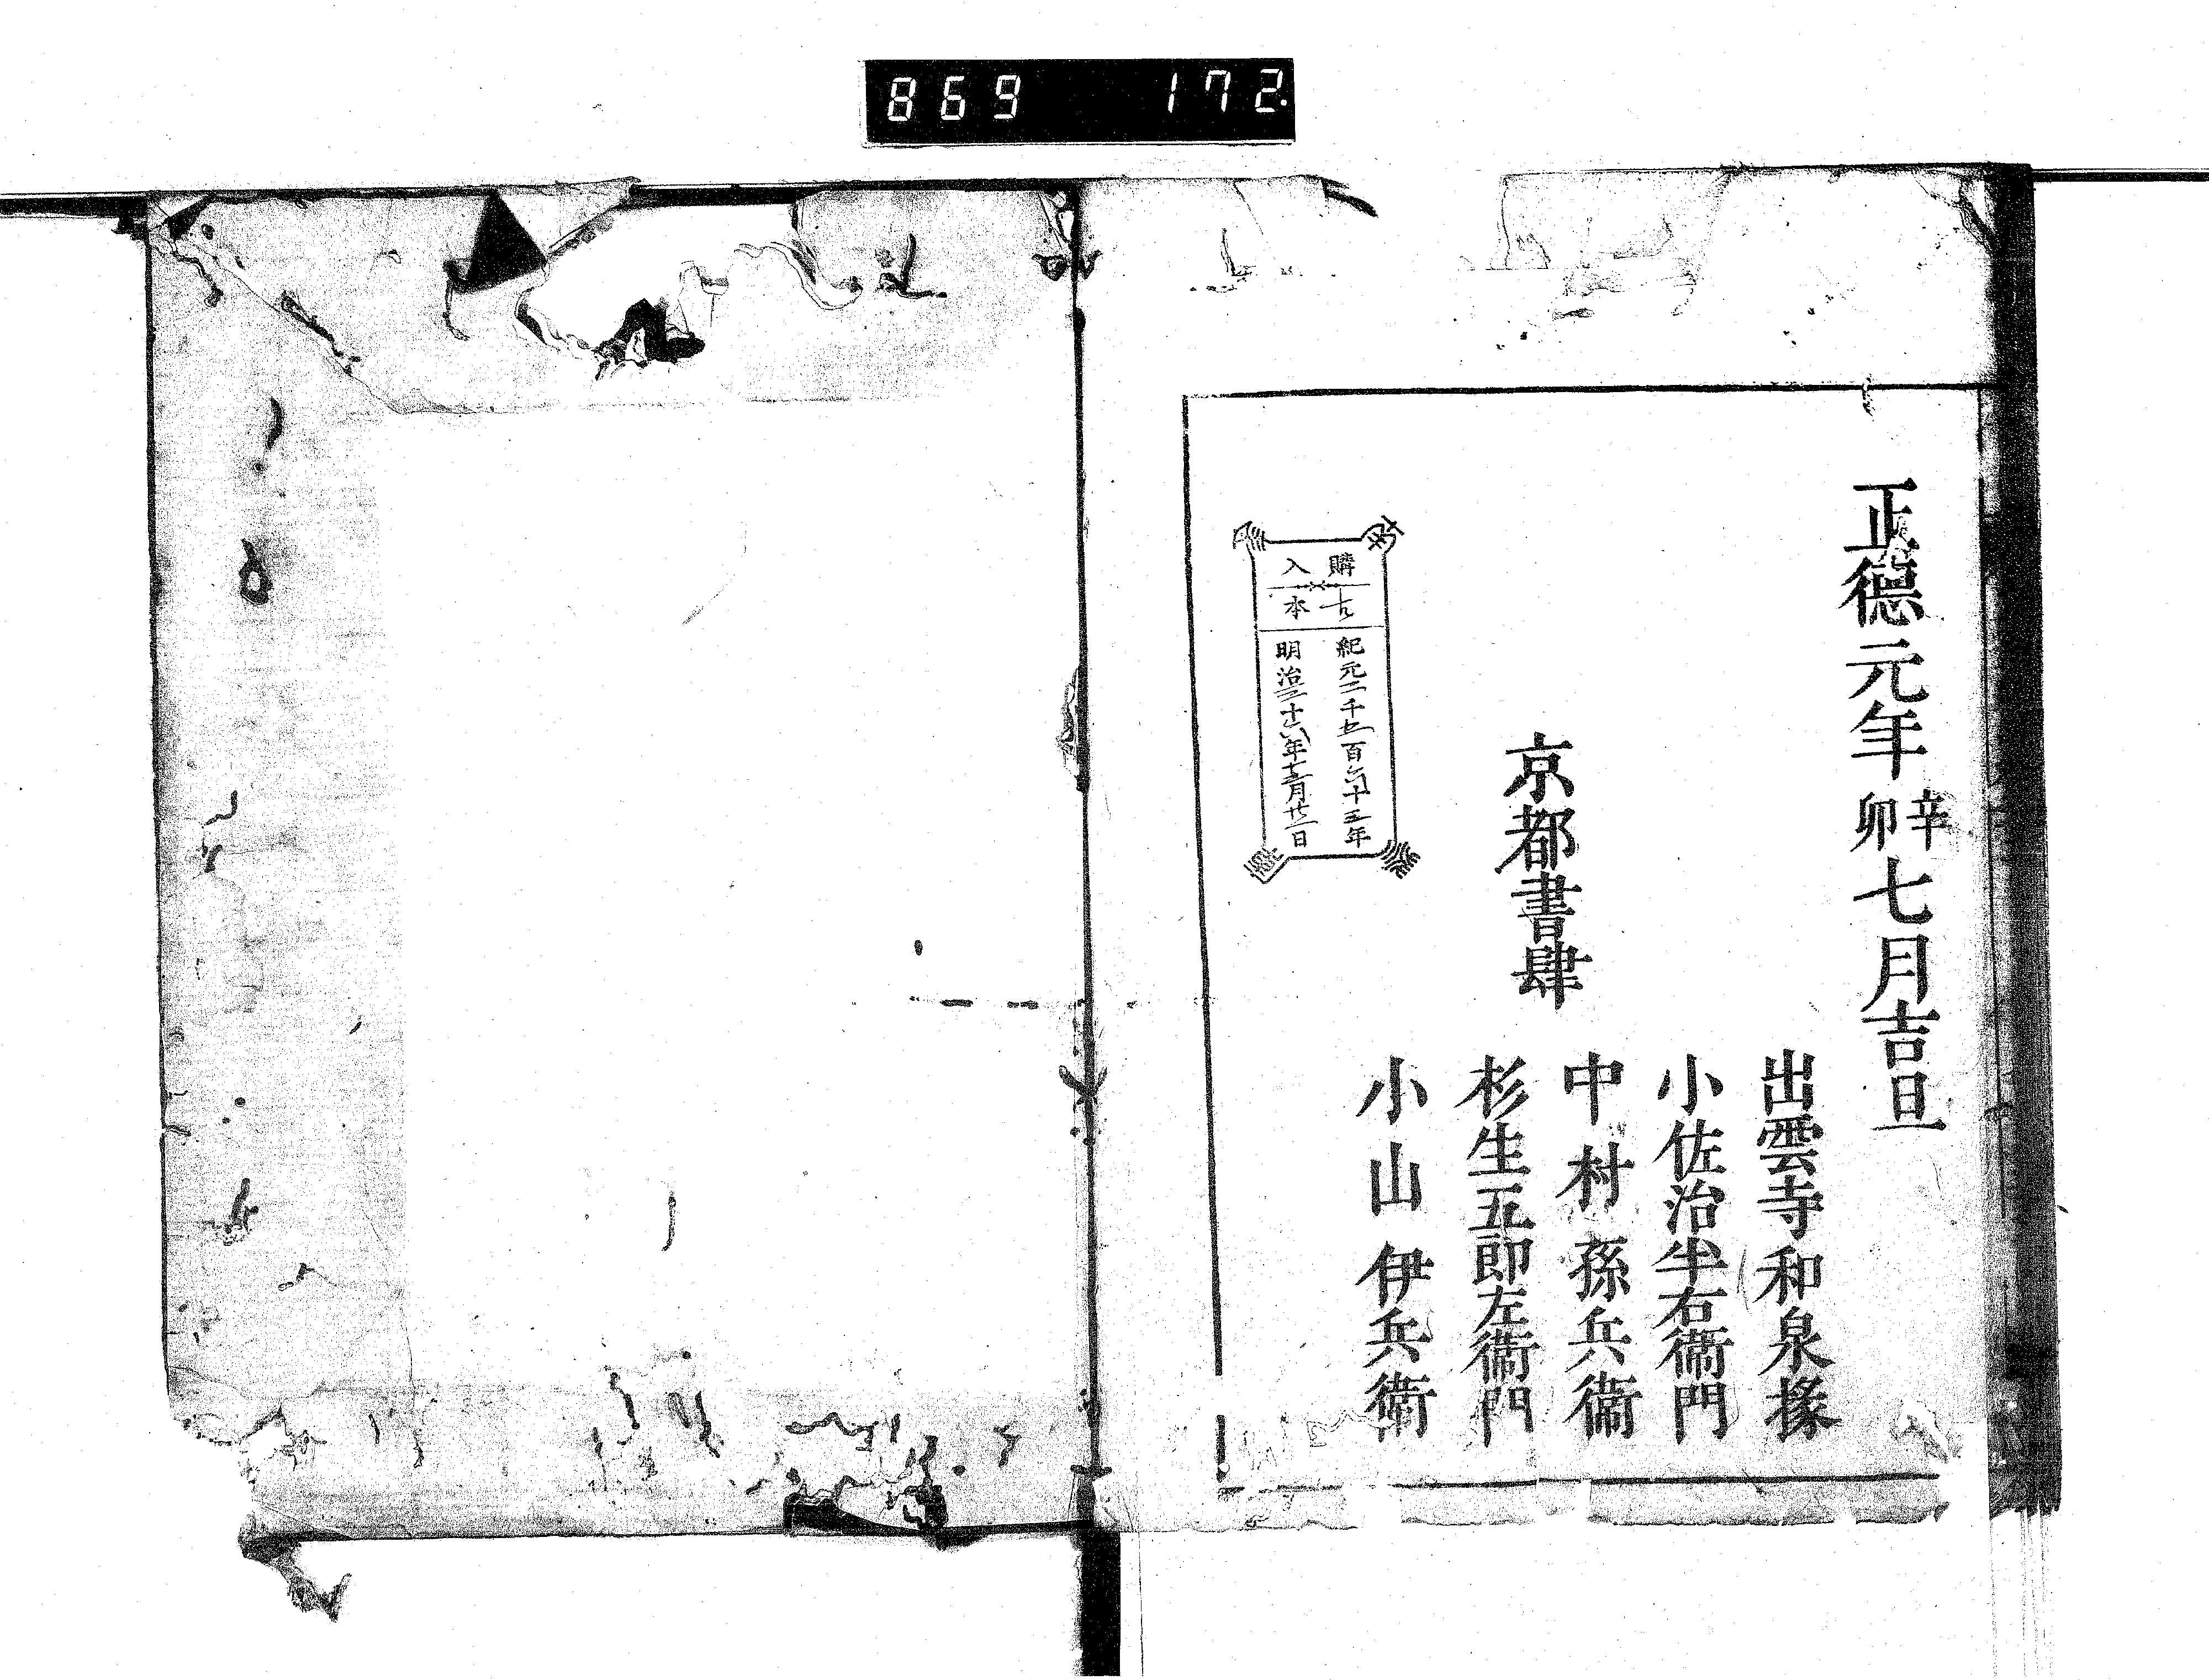 869 172
正德元年辛卯七月吉旦
出雲寺和泉掾
小佐治半右衞門
中村孫兵衞
京都書肆
杉生五郎左衞門
小山伊兵衞
購入
古本
紀元二千五百六十五年
明治三十八年十二月廿二日